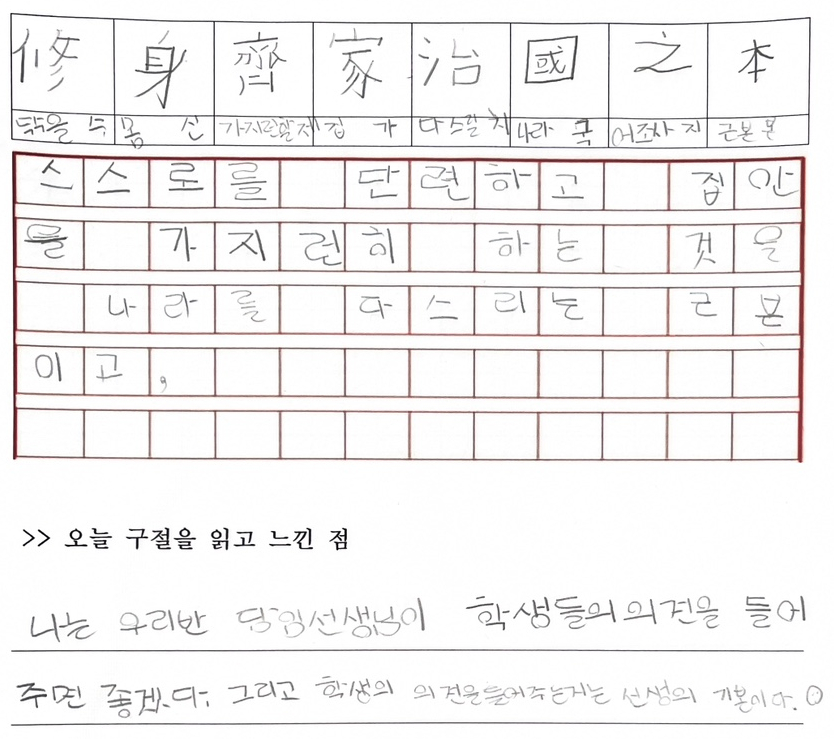 修 身 齊 家 治 國 之 本
닦을 수 몸 신 가지런할 제 집 가 다스릴 치 나라 국 어조사 지 근본 본
스스로를 단련하고 집안
를 가지런히 하는 것을
나라를 다스리는 근본
이고,
>> 오늘 구절을 읽고 느낀 점
나는 우리반 담임선생님이 학생들의 의견을 들어
주면 좋겠다. 그리고 학생의 의견을 들어주는거는 선생의 기본이다.